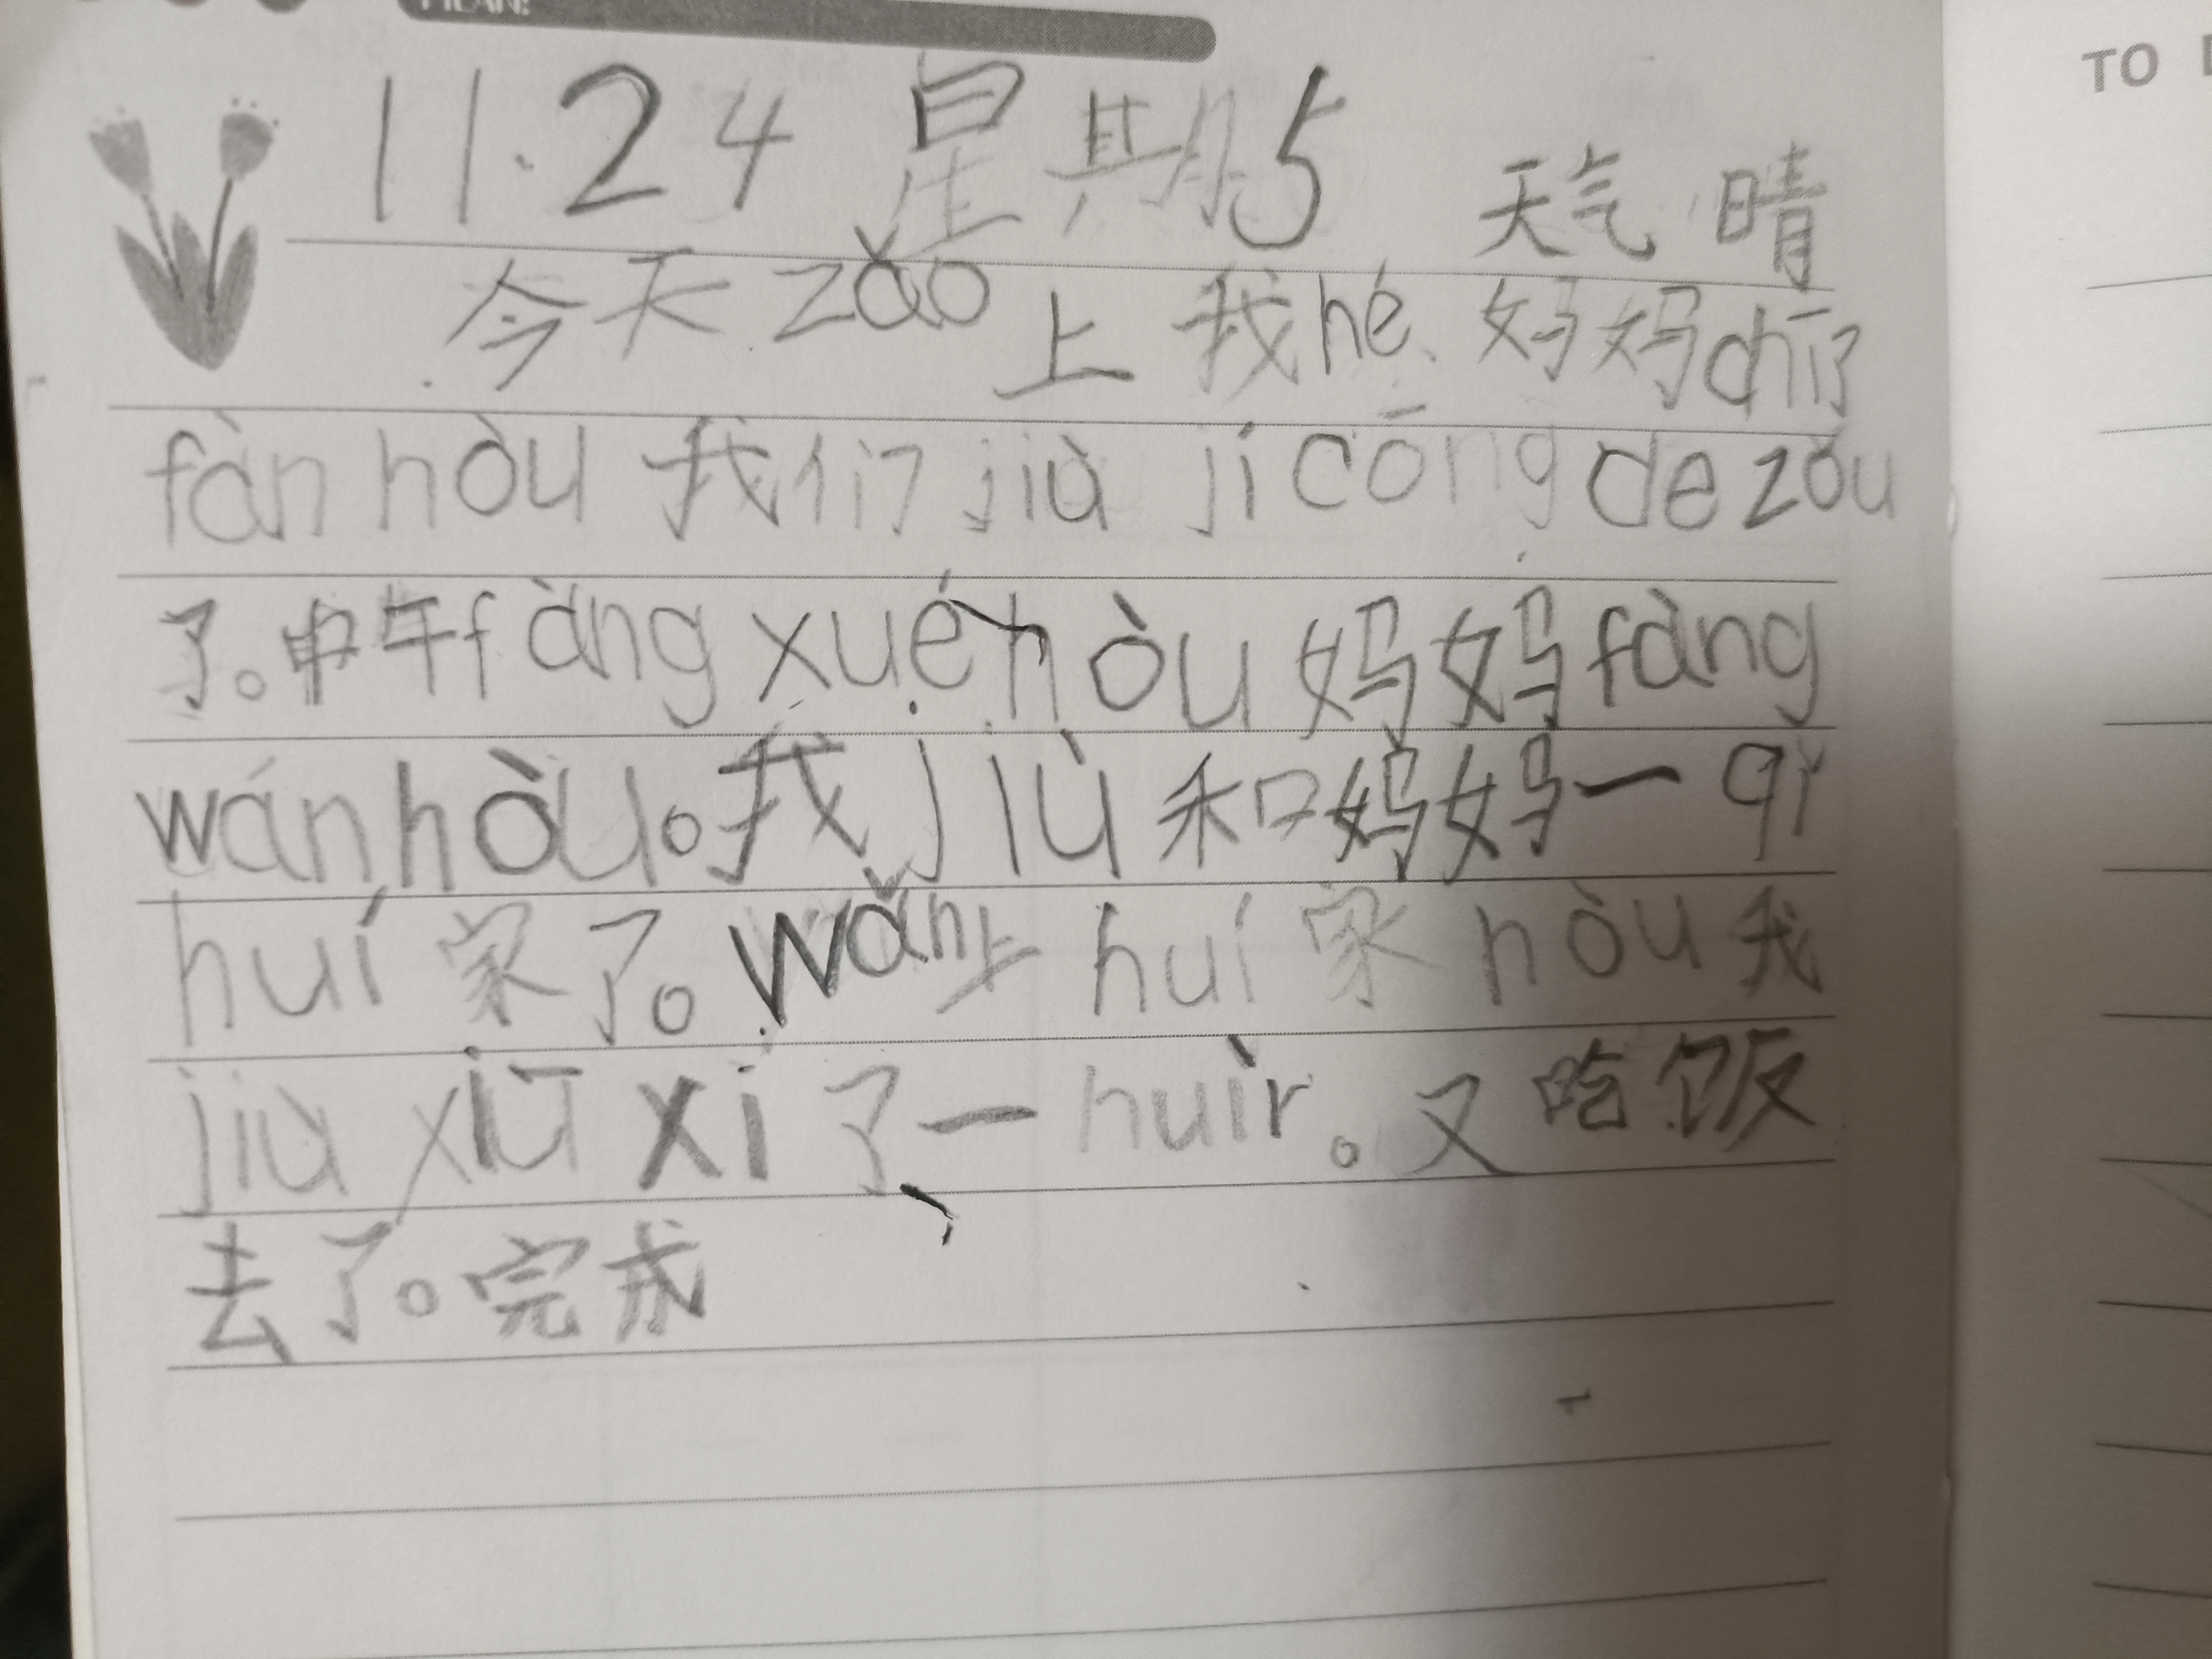 11.24 星期5 天气 晴
今天 zǎo 上 我 hé 妈妈 chī了
fàn hòu 我们 jiù jí cōng de zǒu
了。中午 fàng xué hòu 妈妈 fàng
wán hòu。我 jiù 和 妈妈 一 qǐ
huí 家 了。wǎn 上 huí 家 hòu 我
jiù xiū xi 了 一 huìr。又 吃 饭
去 了。完成
TO